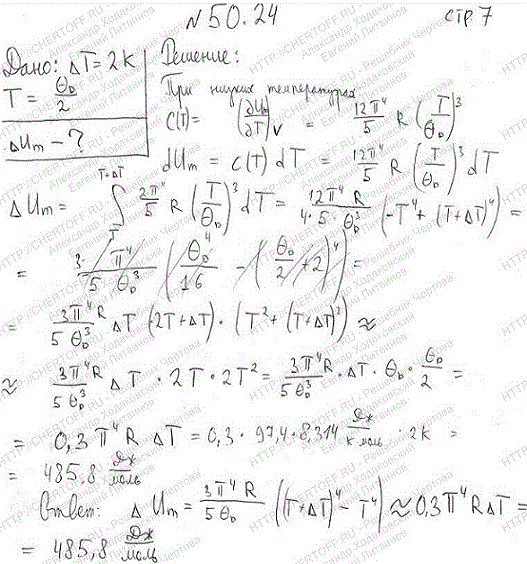 №50.24 стр 7
Дано: ΔT = 2K Решение:
T = θ_D/2 При низких температурах
C(T) = (∂U_m/∂T)_V = 12π⁴/5 R (T/θ_D)³
ΔU_m - ? dU_m = C(T) dT = 12π⁴/5 R (T/θ_D)³ dT
ΔU_m = ∫_T^{T+ΔT} 12π⁴/5 R (T/θ_D)³ dT = 12π⁴R/(4·5·θ_D³) (-T⁴ + (T+ΔT)⁴) =
= 3·π⁴/(5 θ_D³) (θ_D⁴/16 - (θ_D/2 + 2)⁴) =
= 3π⁴R/(5θ_D³) ΔT (2T+ΔT)·(T² + (T+ΔT)²) ≈
≈ 3π⁴R/(5θ_D³) ΔT · 2T · 2T² = 3π⁴R/(5θ_D³) · ΔT · θ_D · θ_D/2 =
= 0,3 π⁴ R ΔT = 0,3 · 97,4 · 8,314 Дж/(К моль) · 2K =
= 485,8 Дж/моль
Ответ: ΔU_m = 3π⁴R/(5θ_D) ((T+ΔT)⁴ - T⁴) ≈ 0,3π⁴RΔT =
= 485,8 Дж/моль
HTTP://CHERTOFF.RU - Решебник Чертова
Евгений Питьянов
Александр Ходаковский